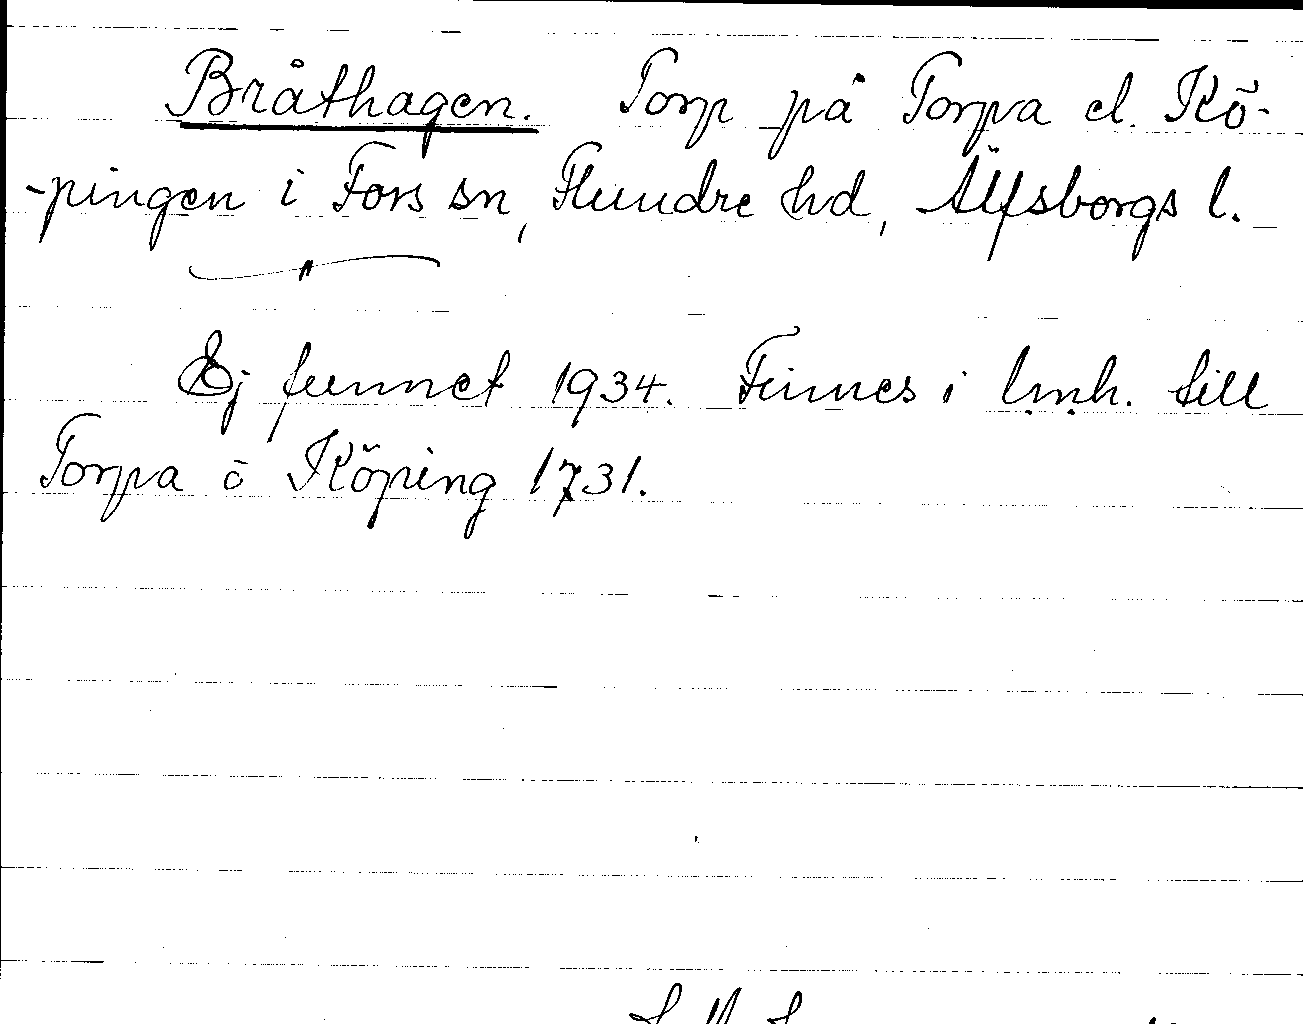 Bråthagen. Torp på Torpa el. Kö-
-pingen i Fors sn, Flundre hd, Älfsborgs l.
Ej funnet 1934. Finnes i l.m.h. till
Torpa o Köping 1731.